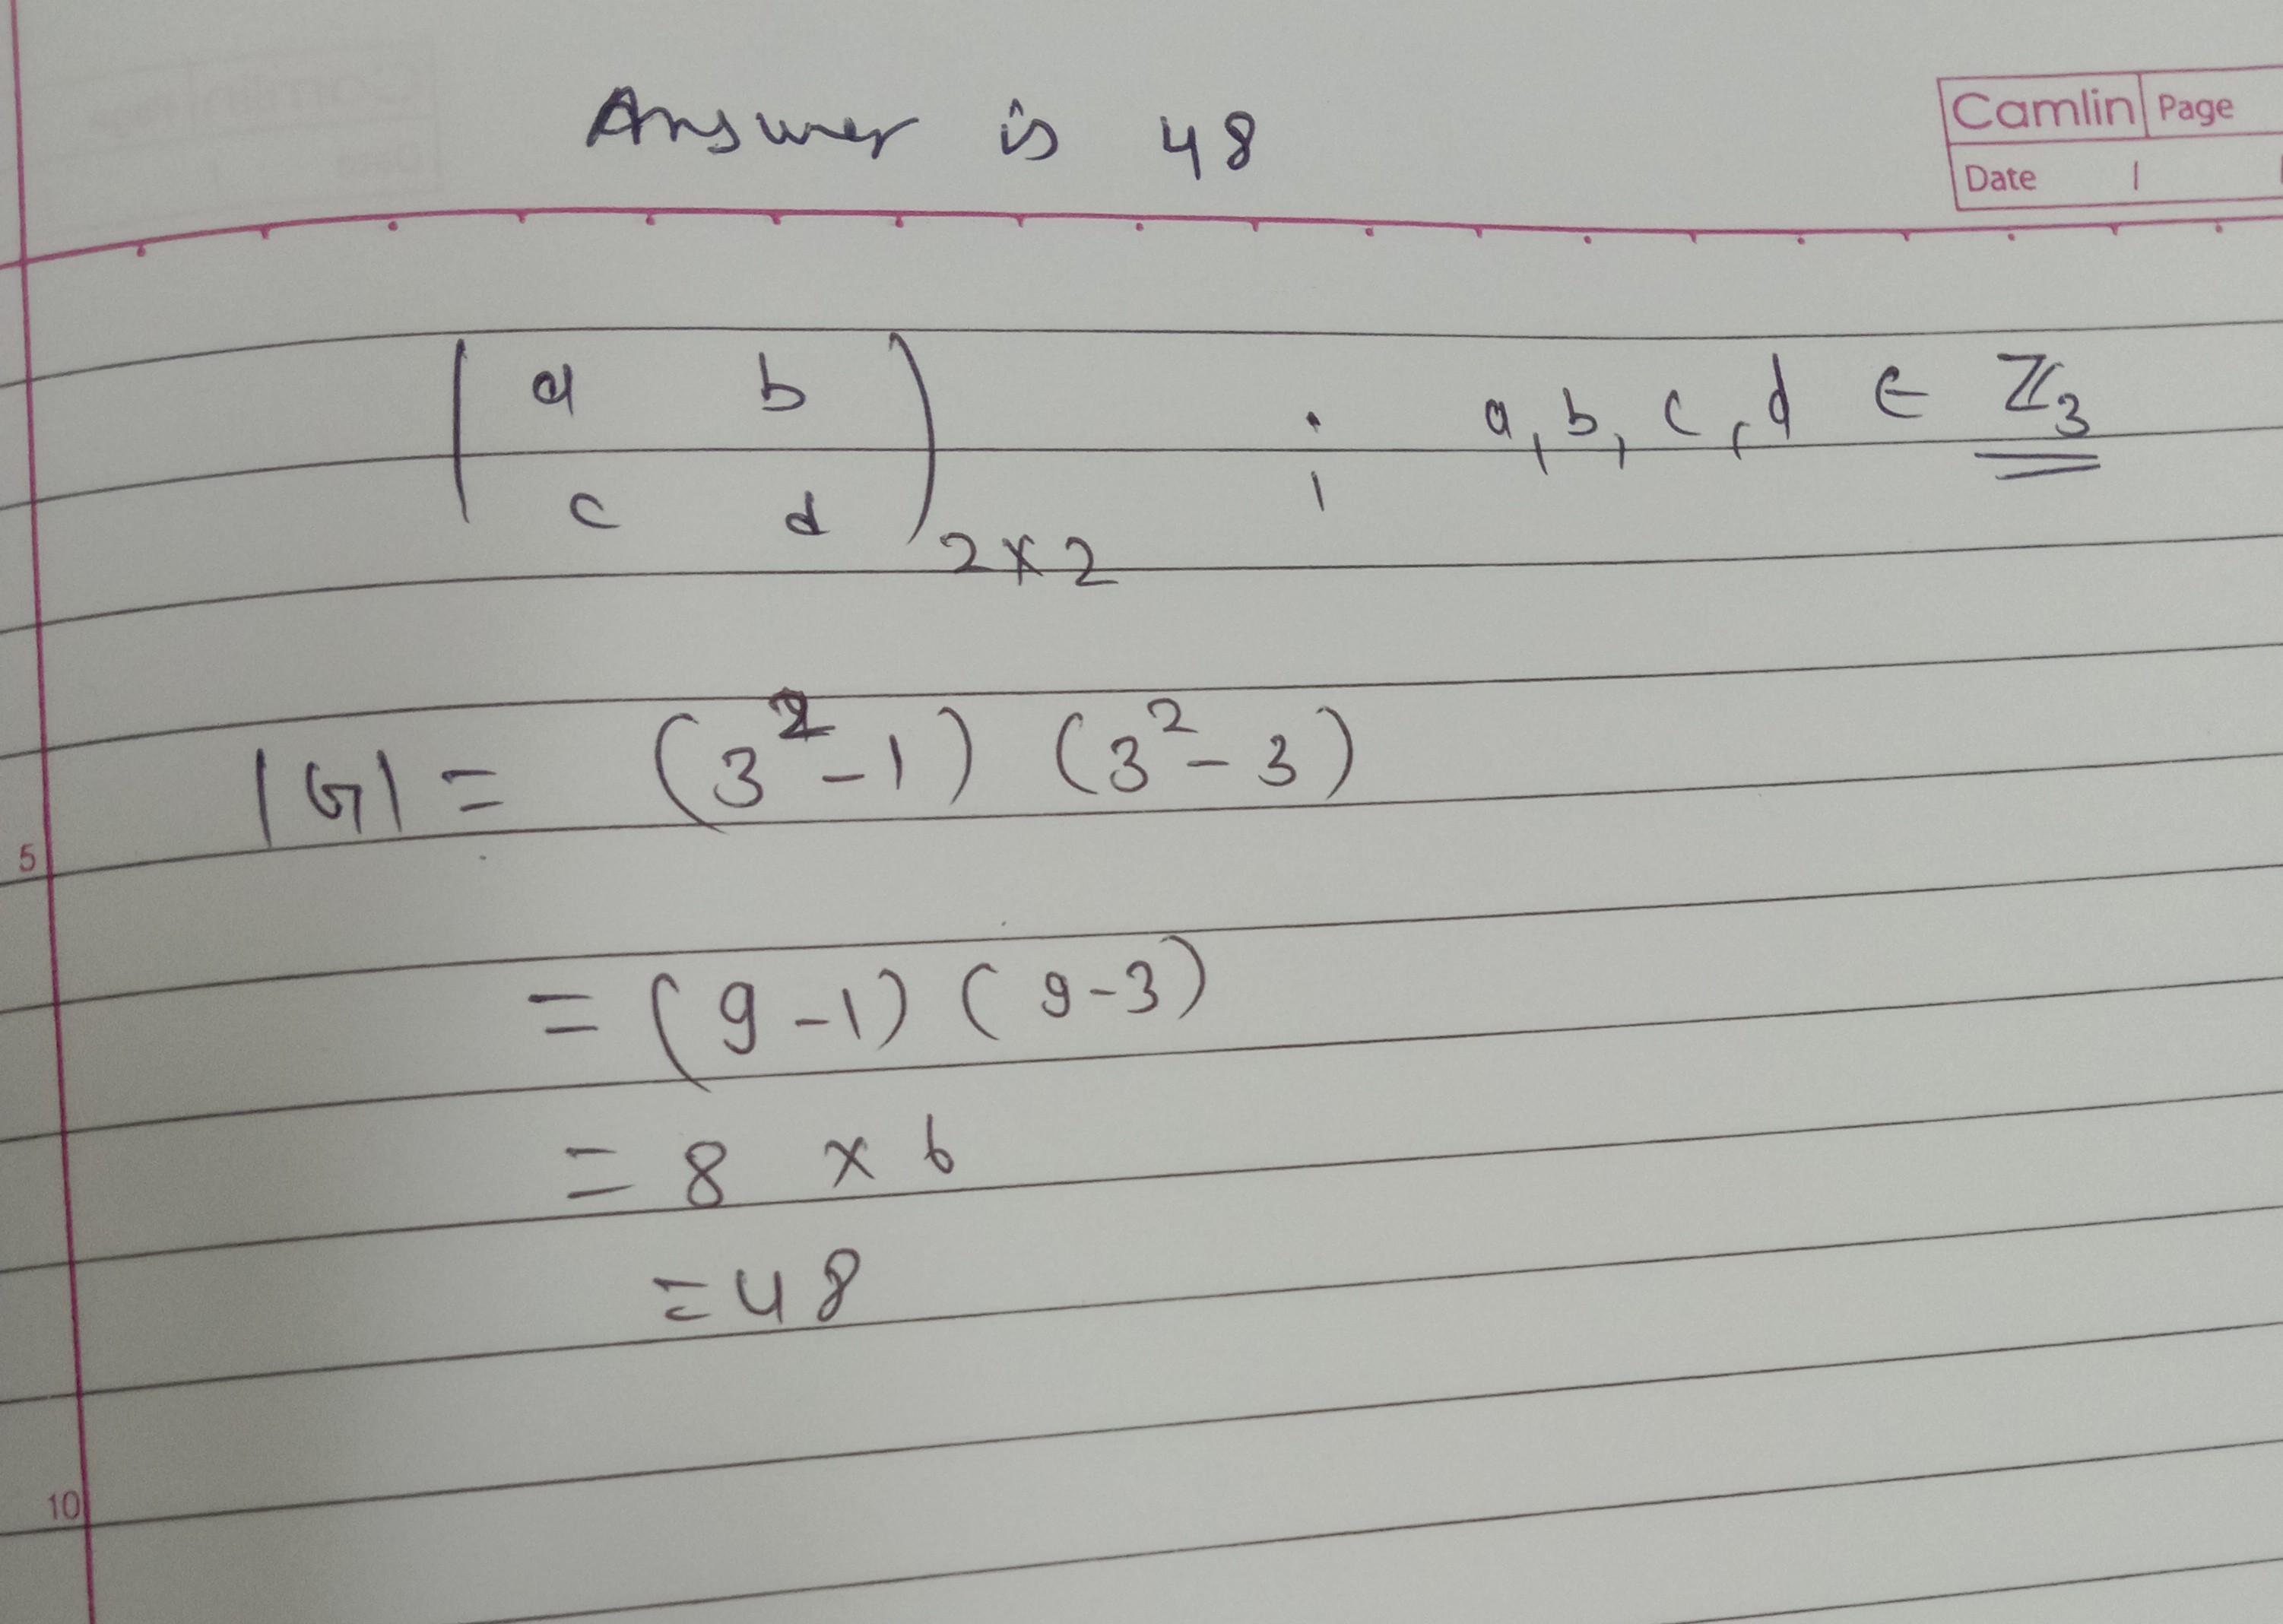 Answer is 48
Camlin Page
Date / /
( a b
c d ) 2×2 ; a, b, c, d ∈ ℤ3
|G| = (3²-1) (3²-3)
5
= (9-1) (9-3)
= 8 × 6
= 48
10